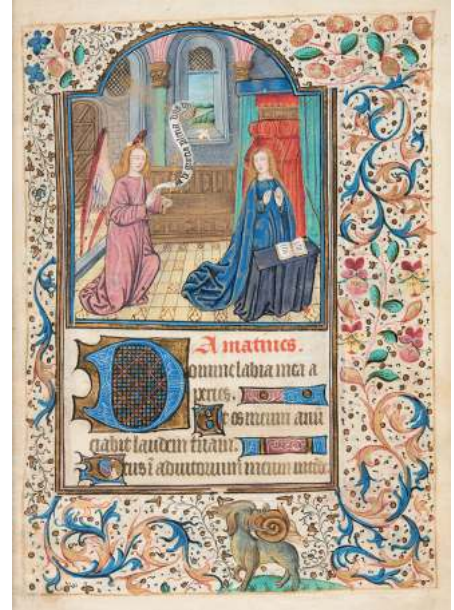 maria
A matines.
Domine labia mea a
peries. Et os meum anū
ciabit laudem tuam.
Deus ī adiutorium meum